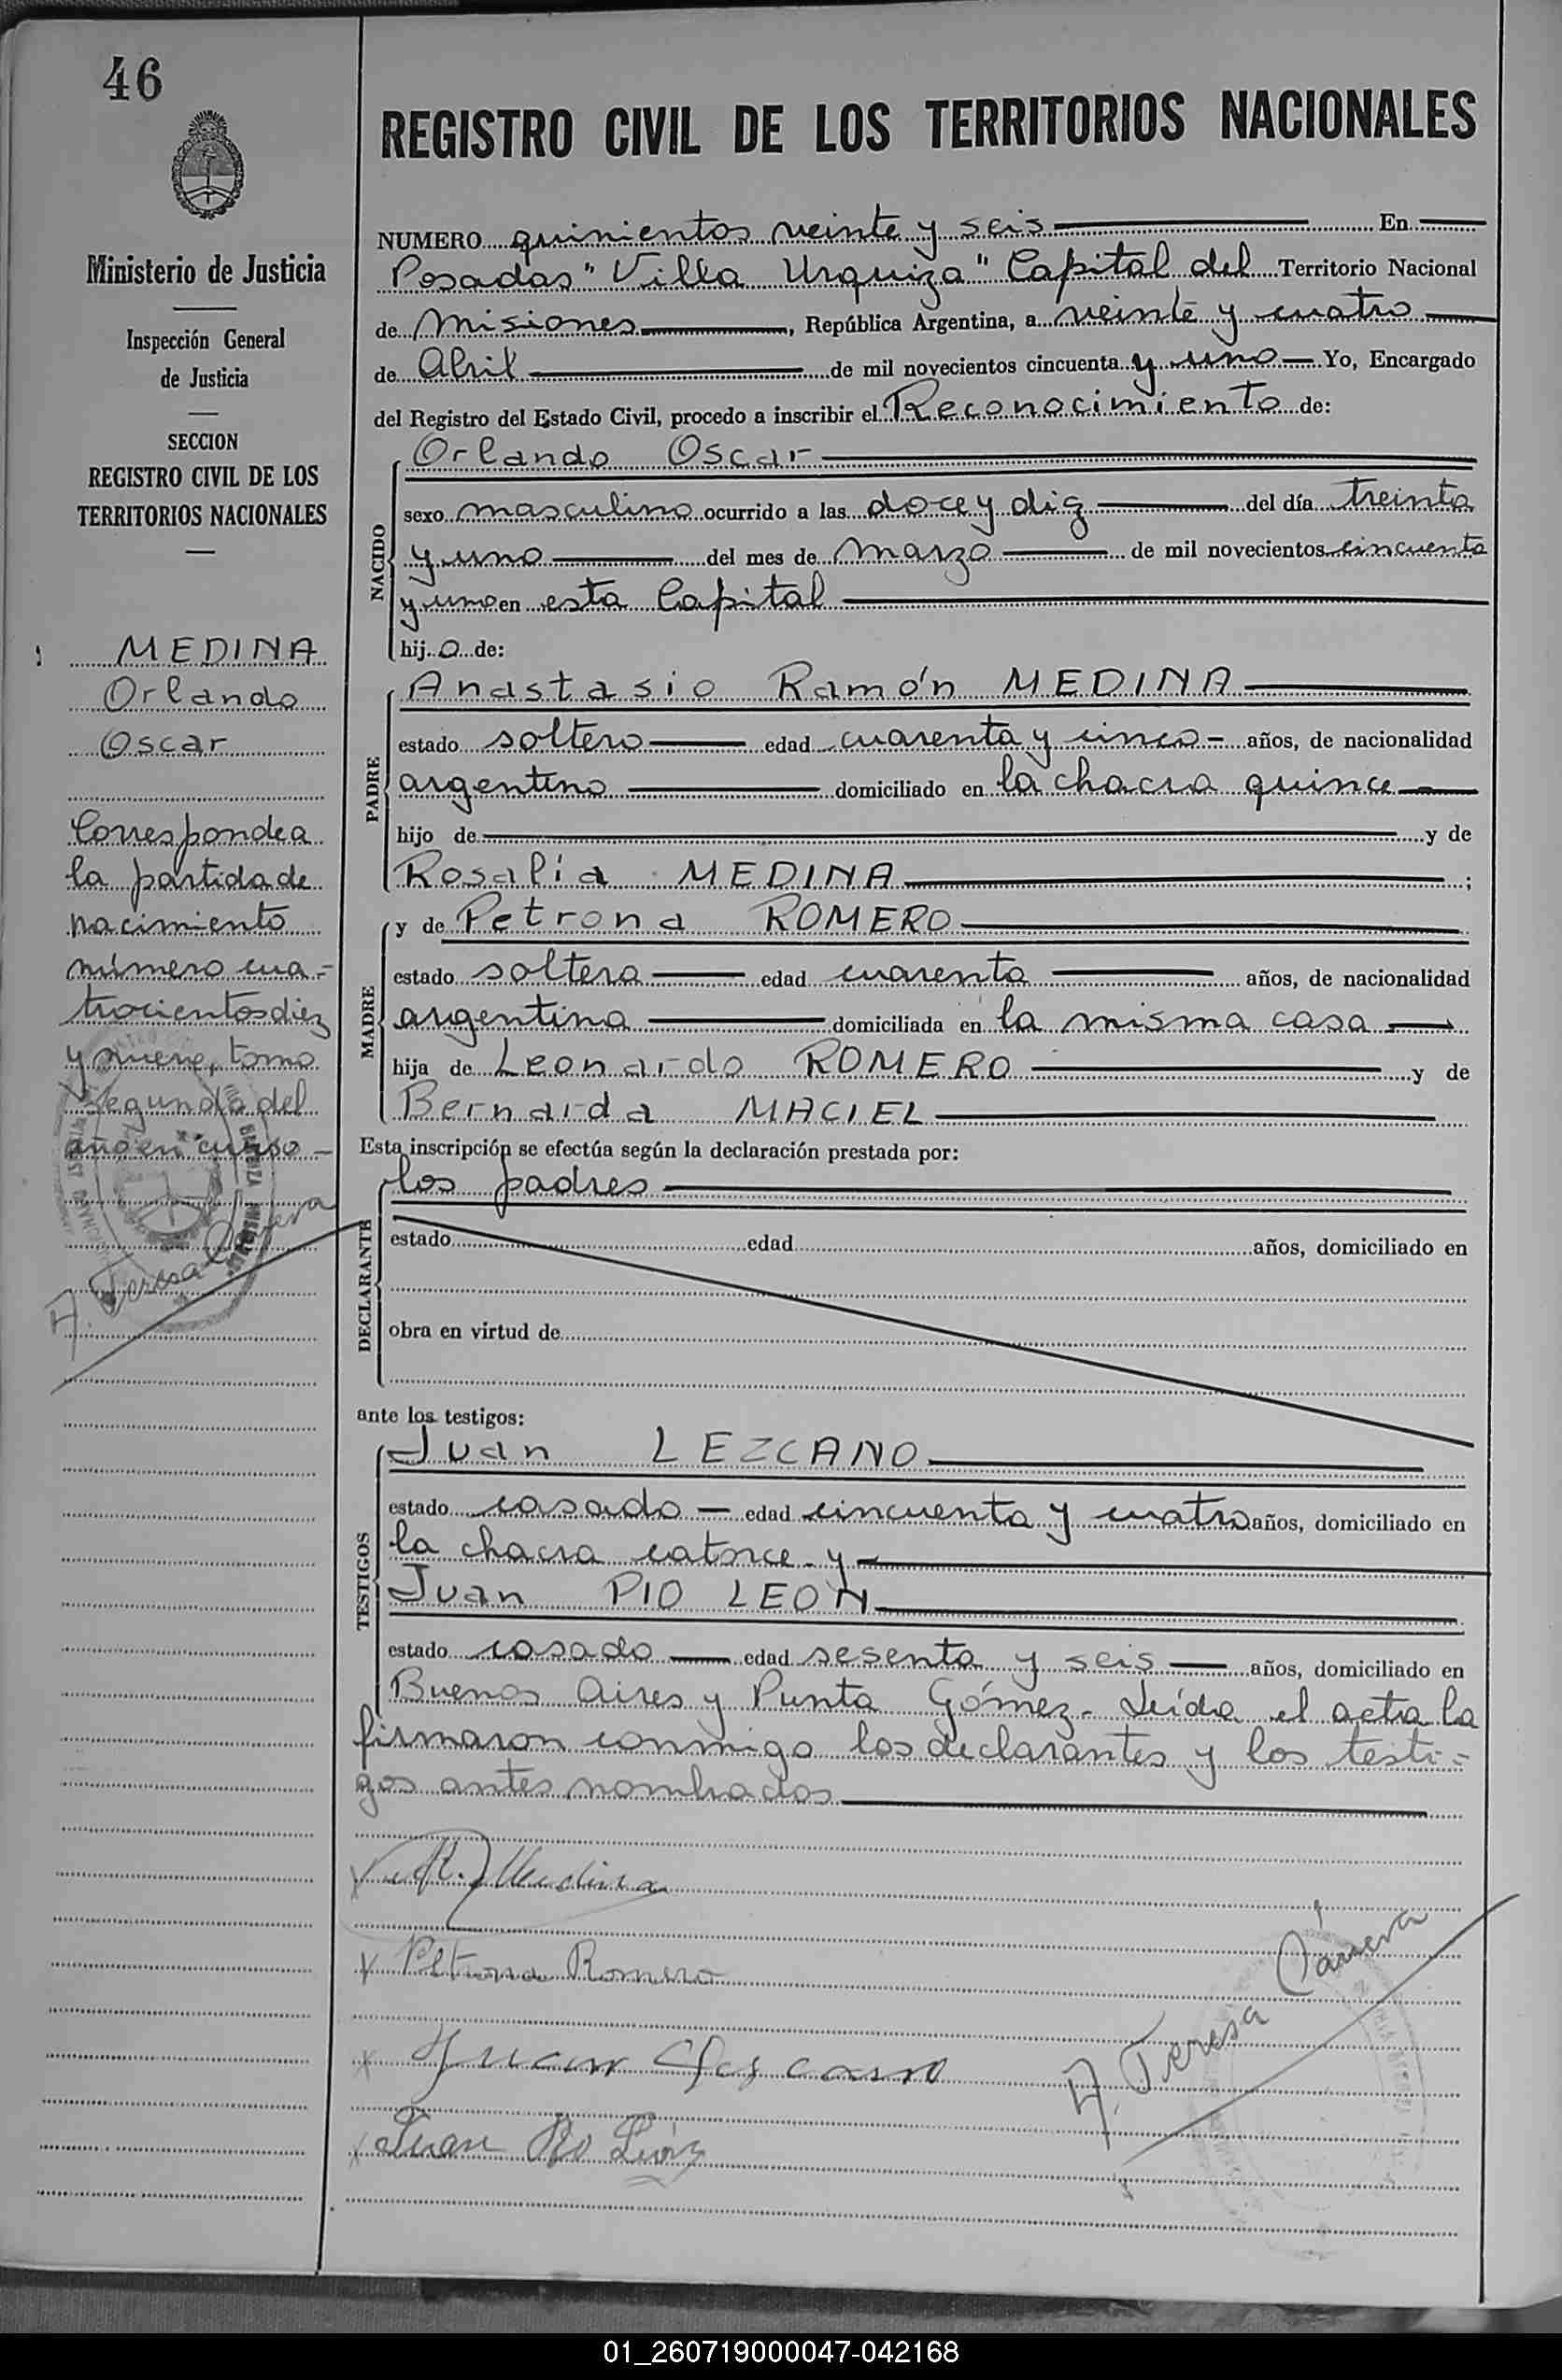 46
REGISTRO CIVIL DE LOS TERRITORIOS NACIONALES
Ministerio de Justicia
Inspección General
de Justicia
SECCION
REGISTRO CIVIL DE LOS
TERRITORIOS NACIONALES
MEDINA
Orlando
Oscar
Corresponde a
la partida de
nacimiento
número cua-
trocientos diez
y nueve, tomo
segundo del
año en curso
A. Teresa
NUMERO quinientos veinte y seis En
Posadas "Villa Urquiza" Capital del Territorio Nacional
de Misiones, República Argentina, a veinte y cuatro
de Abril de mil novecientos cincuenta y uno Yo, Encargado
del Registro del Estado Civil, procedo a inscribir el Reconocimiento de:
NACIDO
Orlando Oscar
sexo masculino ocurrido a las doce y diez del día treinta
y uno del mes de marzo de mil novecientos cincuenta
y uno en esta Capital
hijo de:
PADRE
Anastasio Ramón MEDINA
estado soltero edad cuarenta y cinco - años, de nacionalidad
argentino domiciliado en la chacra quince
hijo de y de
Rosalía MEDINA ;
MADRE
y de Petrona ROMERO
estado soltera edad cuarenta años, de nacionalidad
argentina domiciliada en la misma casa
hija de Leonardo ROMERO y de
Bernarda MACIEL
Esta inscripción se efectúa según la declaración prestada por:
DECLARANTE
los padres
estado edad años, domiciliado en
obra en virtud de
ante los testigos:
TESTIGOS
Juan LEZCANO
estado casado - edad cincuenta y cuatro años, domiciliado en
la chacra catorce y
Juan PIO LEON
estado casado edad sesenta y seis años, domiciliado en
Buenos Aires y Punta Gómez - Leída el acta la
firmaron conmigo los declarantes y los testi-
gos antes nombrados
R. Medina
x Petrona Romero
x Juan Lescano
Juan Pio León
A. Teresa
01_260719000047-042168